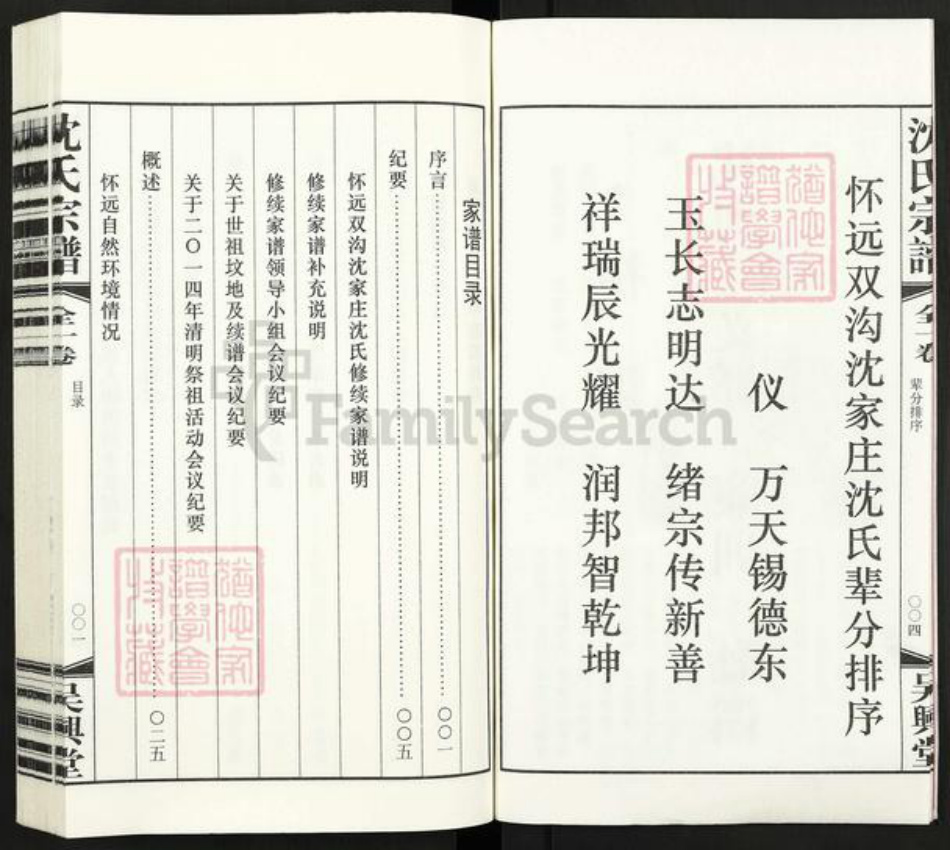 沈氏宗譜
全一卷
辈分排序
〇〇四
吴興堂
怀远双沟沈家庄沈氏辈分排序
仪 万天锡德东
玉长志明达 绪宗传新善
祥瑞辰光耀 润邦智乾坤
家谱目录
序言 〇〇一
纪要 〇〇五
怀远双沟沈家庄沈氏修续家谱说明
修续家谱补充说明
修续家谱领导小组会议纪要
关于世祖坟地及续谱会议纪要
关于二〇一四年清明祭祖活动会议纪要
概述 〇二五
怀远自然环境情况
沈氏宗譜
全一卷
目录
〇〇一
吴興堂
FamilySearch